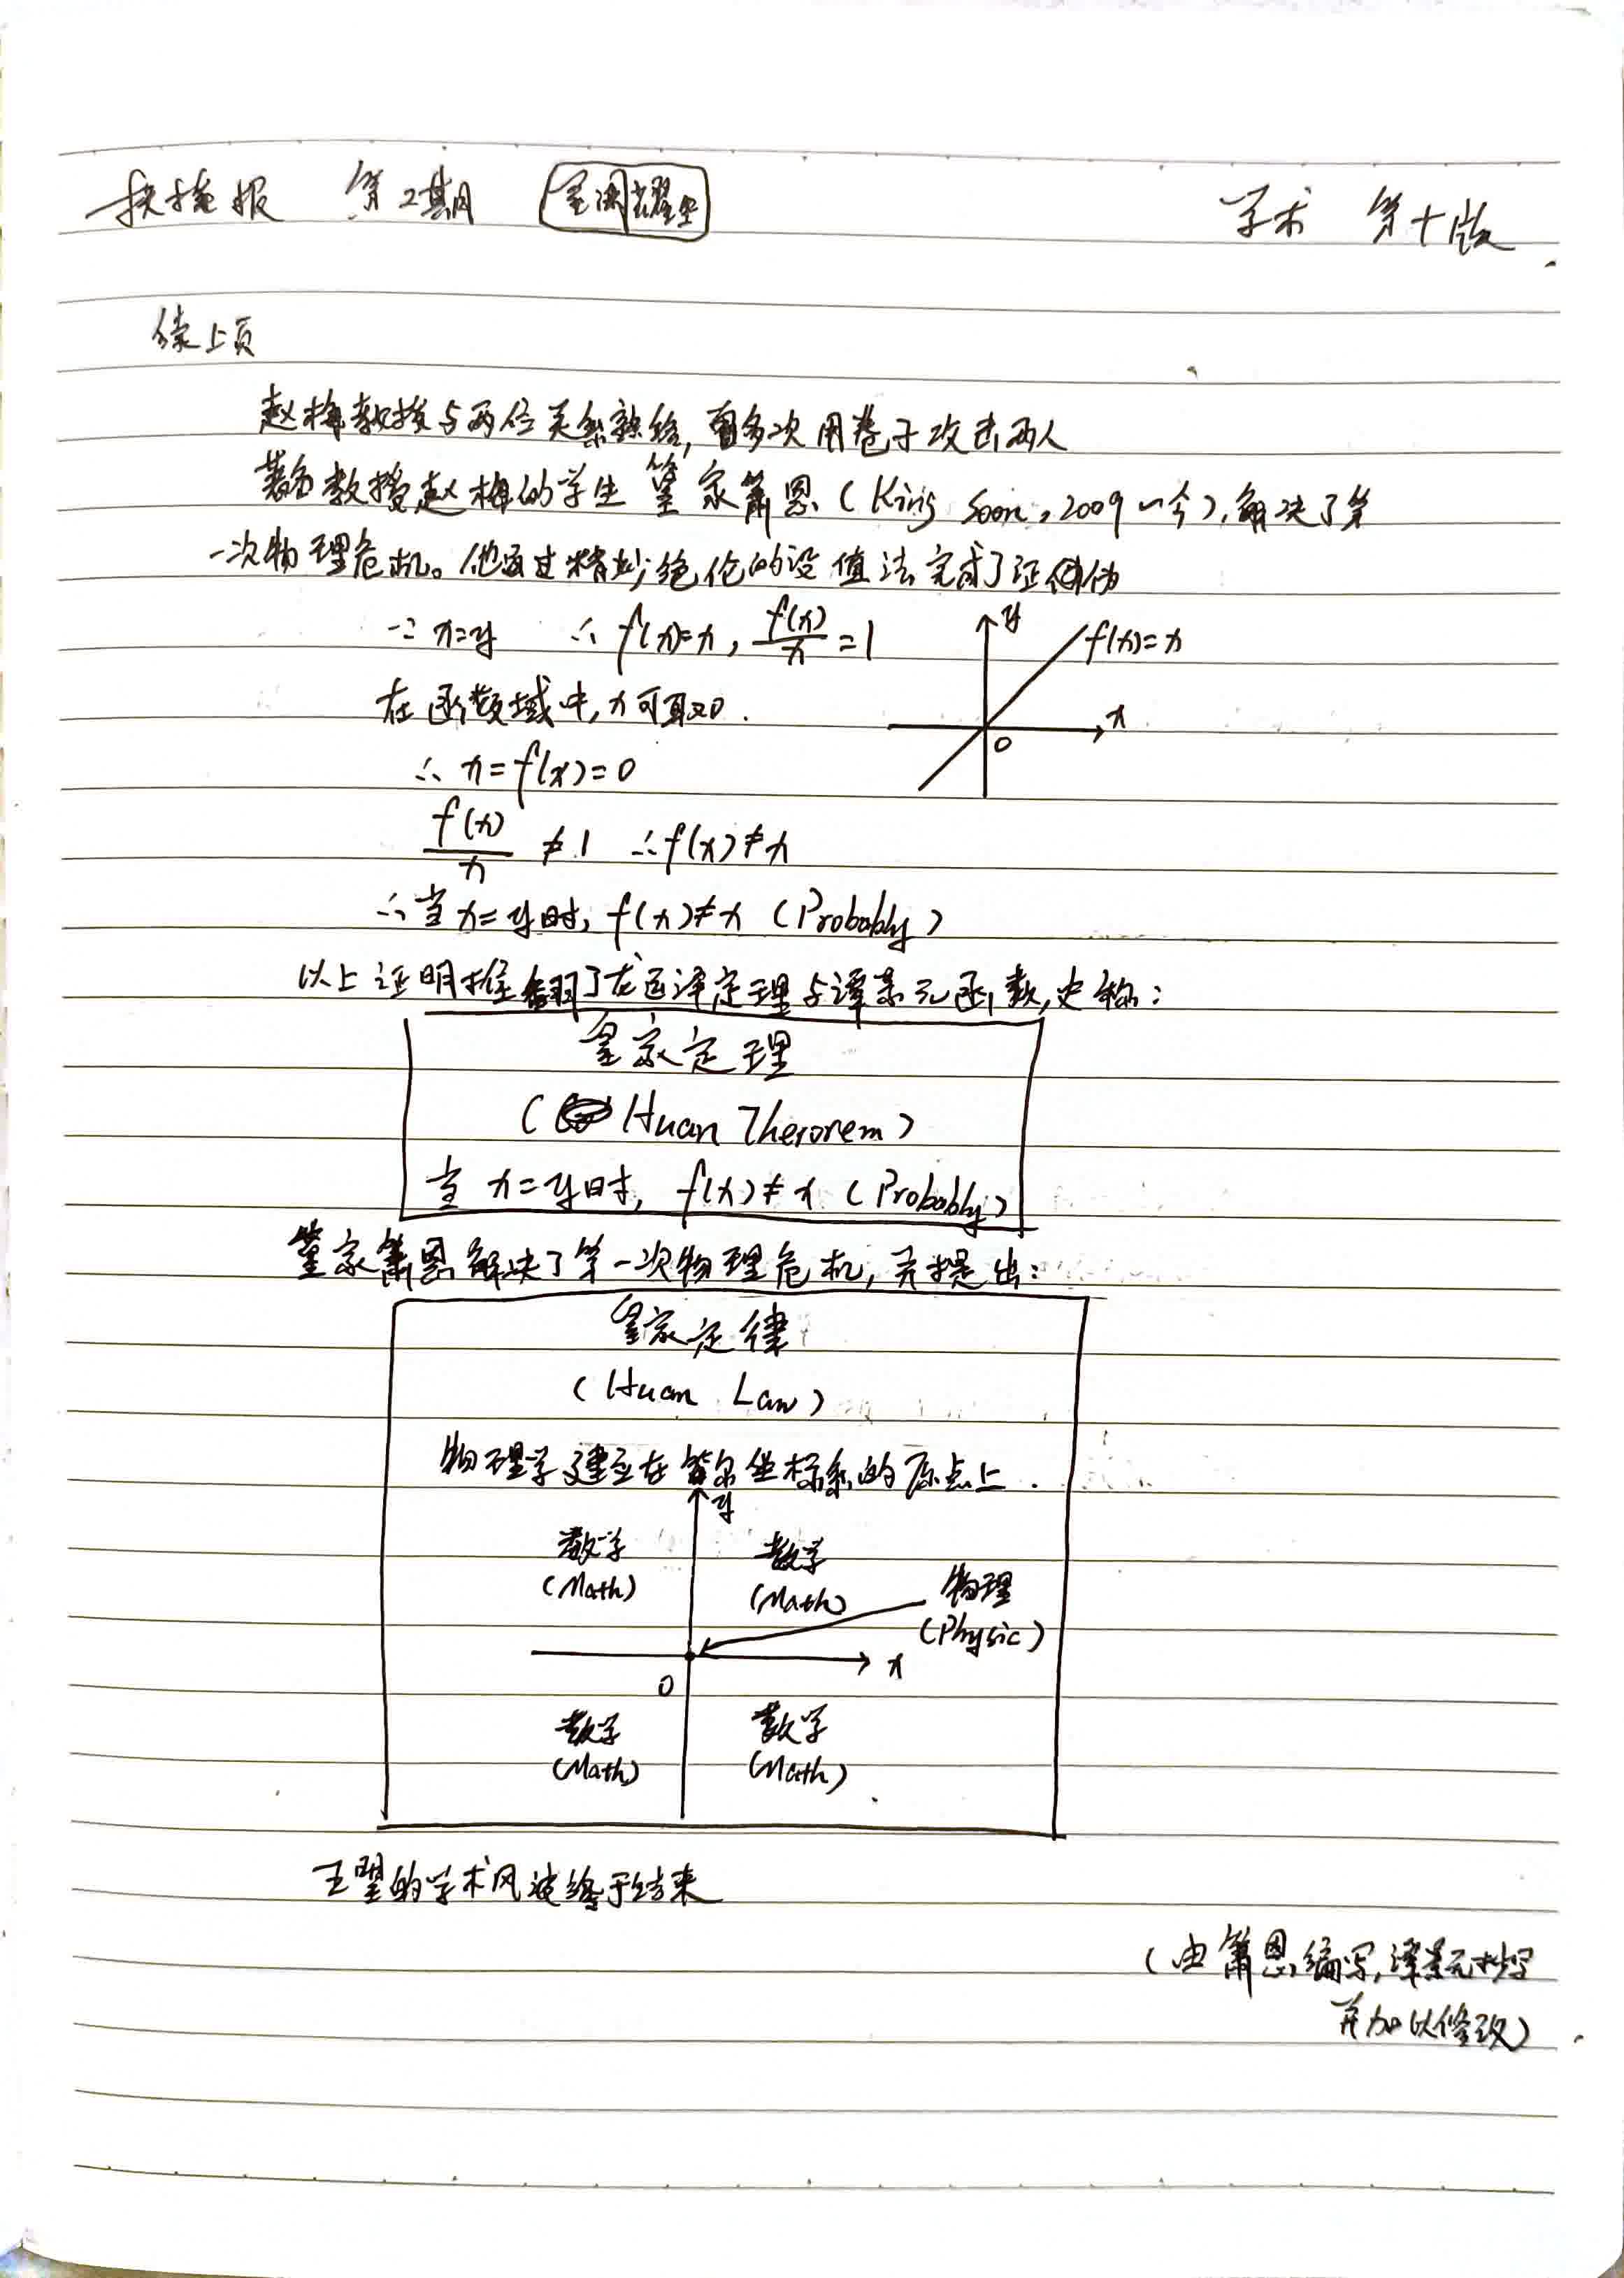 扶掖报 第2期 学术 第十版
续上页
赵梅教授与两位关系熟络,曾多次用卷子攻击两人
著名教授赵梅的学生篁家箫恩(King Soon,2009~今),解决了第
一次物理危机。他通过精妙绝伦的设值法完成了证伪
∵ x=y ∴ f(x)=x, f(x)/x=1
y
f(x)=x
在函数域中,x可取0.
x
0
∴ x=f(x)=0
f(x)/x ≠1 ∴f(x)≠x
∴当x=y时, f(x)≠x (Probably)
以上证明推翻了龙运泽定理与谭景元函数,史称:
篁家定理
(Huan Therorem)
当 x=y时, f(x)≠x (Probably)
篁家箫恩解决了第一次物理危机,并提出:
篁家定律
(Huan Law)
物理学建立在笛尔坐标系的原点上.
y
数学 数学
(Math) (Math)
物理
(Physic)
x
0
数学 数学
(Math) (Math)
的学术风波终于结束
(由箫恩编写,谭景元抄写
并加以修改)